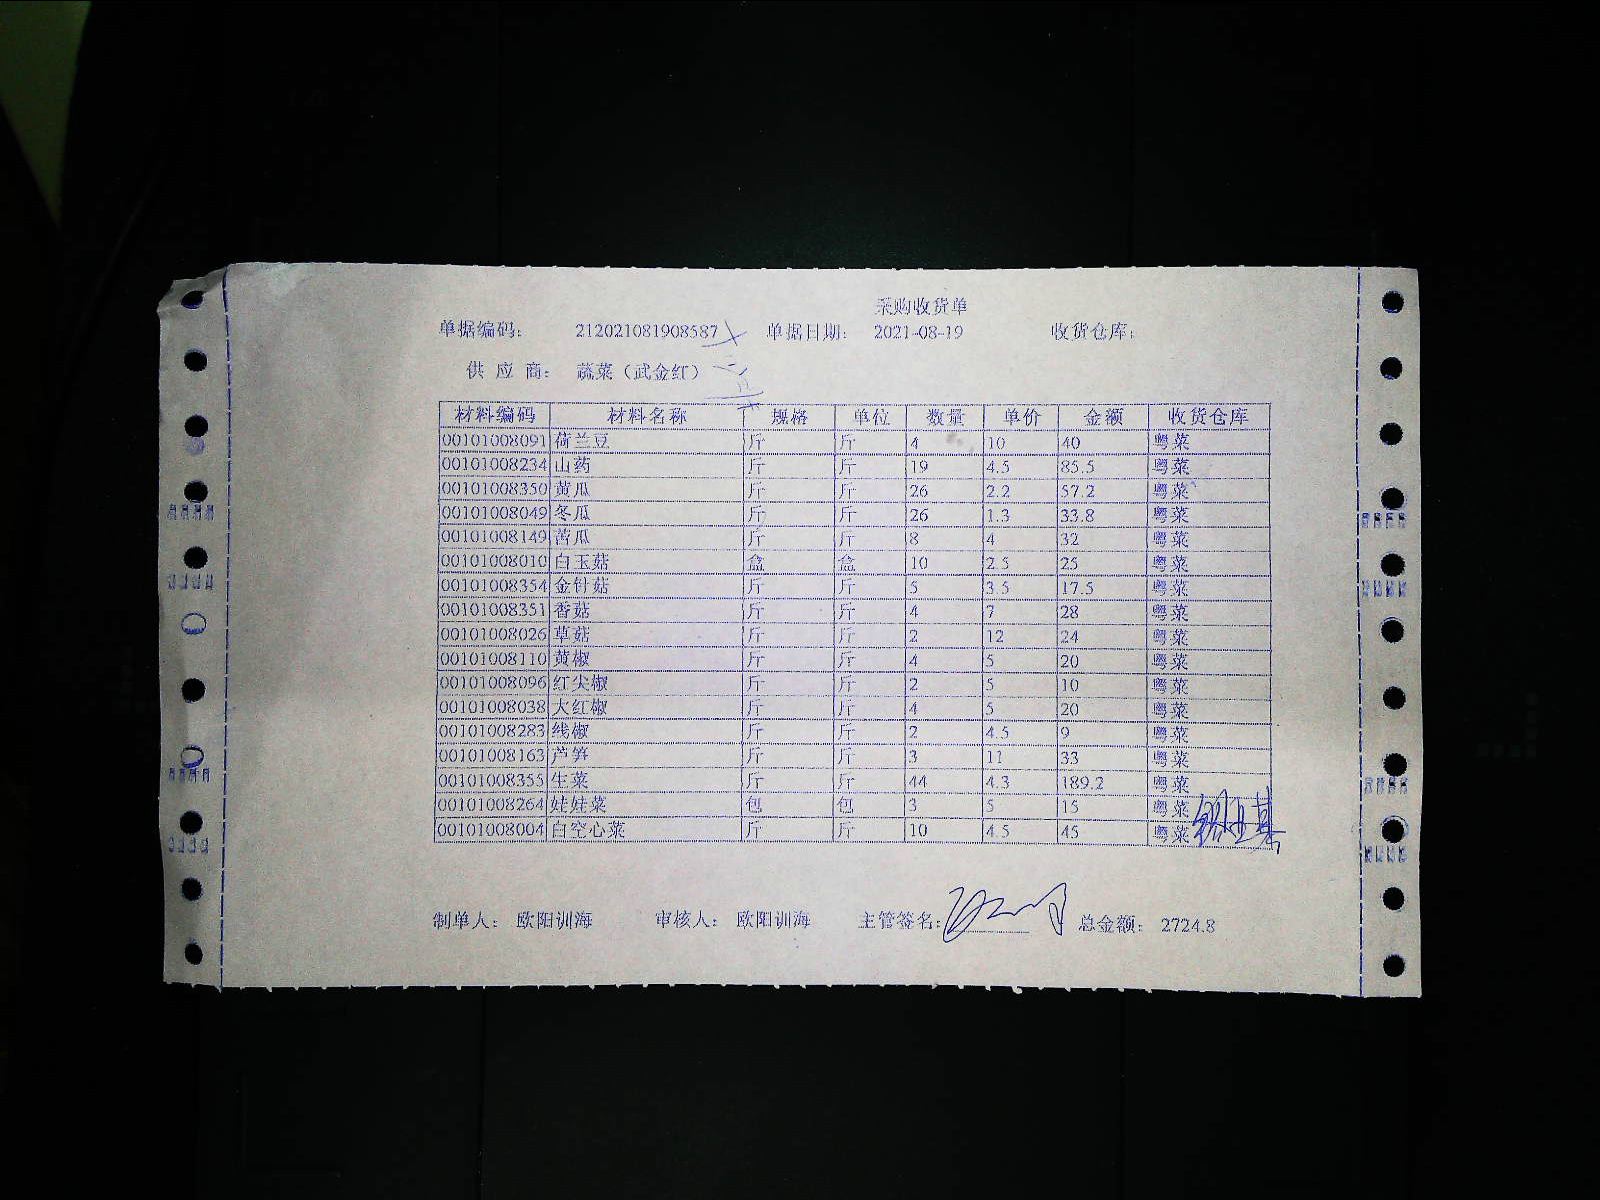 采购收货单
单据编码： 212021081908587 单据日期： 2021-08-19 收货仓库：
供 应 商： 蔬菜（武金红）
材料编码 材料名称 规格 单位 数量 单价 金额 收货仓库
00101008091 荷兰豆 斤 斤 4 10 40 粤菜
00101008234 山药 斤 斤 19 4.5 85.5 粤菜
00101008350 黄瓜 斤 斤 26 2.2 57.2 粤菜
00101008049 冬瓜 斤 斤 26 1.3 33.8 粤菜
00101008149 苦瓜 斤 斤 8 4 32 粤菜
00101008010 白玉菇 盒 盒 10 2.5 25 粤菜
00101008354 金针菇 斤 斤 5 3.5 17.5 粤菜
00101008351 香菇 斤 斤 4 7 28 粤菜
00101008026 草菇 斤 斤 2 12 24 粤菜
00101008110 黄椒 斤 斤 4 5 20 粤菜
00101008096 红尖椒 斤 斤 2 5 10 粤菜
00101008038 大红椒 斤 斤 4 5 20 粤菜
00101008283 线椒 斤 斤 2 4.5 9 粤菜
00101008163 芦笋 斤 斤 3 11 33 粤菜
00101008355 生菜 斤 斤 44 4.3 189.2 粤菜
00101008264 娃娃菜 包 包 3 5 15 粤菜
00101008004 白空心菜 斤 斤 10 4.5 45 粤菜
制单人： 欧阳训海 审核人： 欧阳训海 主管签名： 总金额： 2724.8